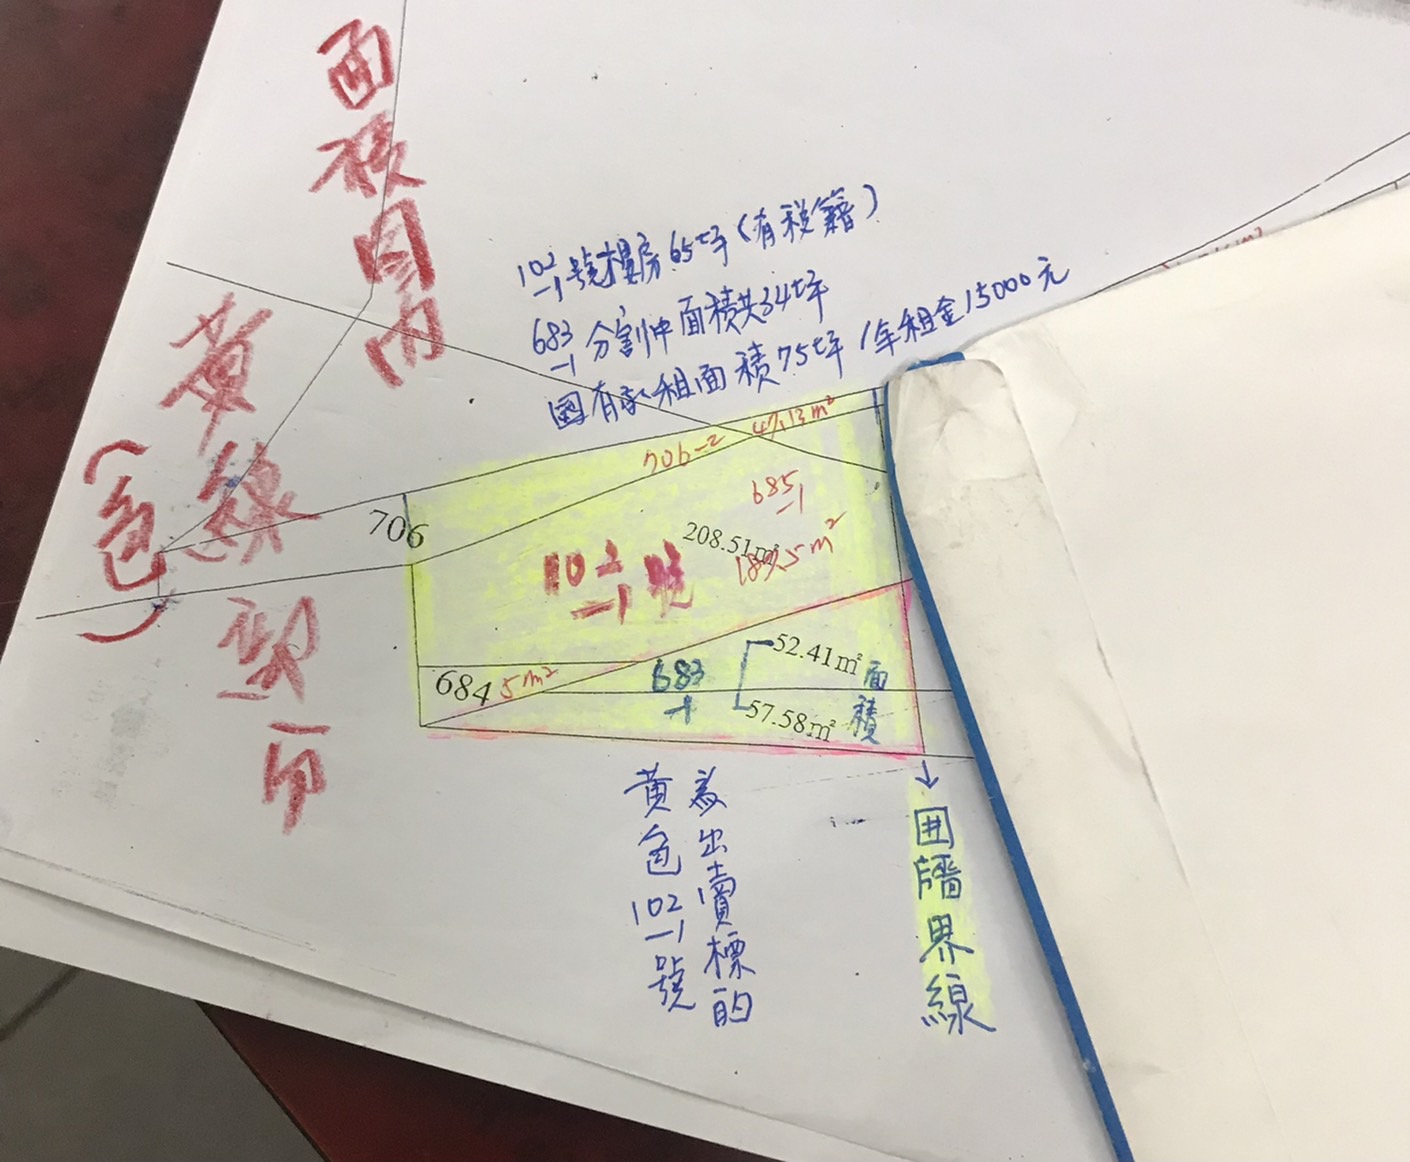 102-1號樓房65坪(有稅籍)
683-1分割中面積共34坪
國有承租面積75坪/年租金15000元
706-2 47.13m²
706
685-1
208.51m²
102-1號
52.41m²
面積
684 5m²
683-1
57.58m²
黃色102-1號
為出賣標的
↓
囲牆界線
面積因
黃線部份
(色)